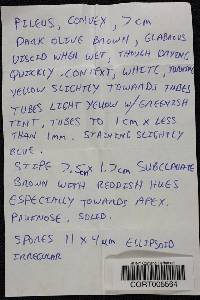 PILEUS, CONVEX, 7 cm
DARK OLIVE BROWN, GLABROUS
VISCID WHEN WET, THOUGH DRYING
QUICKLY. CONTEXT, WHITE, TURNING
YELLOW SLIGHTLY TOWARDS TUBES
TUBES LIGHT YELLOW w/ GREENISH
TINT, TUBES TO 1 cm x LESS
THAN 1mm. STAINING SLIGHTLY
BLUE.
STIPE 7.5 x 1.7cm SUBCLAVATE
BROWN WITH REDDISH HUES
ESPECIALLY TOWARDS APEX.
PRUINOSE. SOLID.
SPORES 11 x 4 µm ELLIPSOID
IRREGULAR
CORT005564